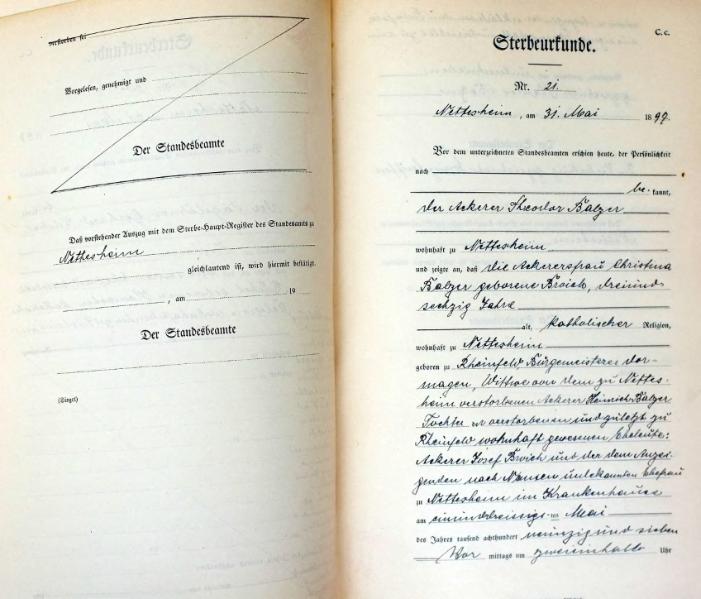 verstorben sei
Vorgelesen, genehmigt und
Der Standesbeamte
Daß vorstehender Auszug mit dem Sterbe-Haupt-Register des Standesamts zu
Nettesheim
gleichlautend ist, wird hiermit bestätigt.
, am 19
Der Standesbeamte
(Siegel)
C. c.
Sterbeurkunde.
Nr. 21.
Nettesheim, am 31. Mai 1897.
Vor dem unterzeichneten Standesbeamten erschien heute, der Persönlichkeit
nach be-kannt,
der Ackerer Theodor Balzer
wohnhaft zu Nettesheim
und zeigte an, daß die Ackerersfrau Christina
Balzer geborene Broich, dreiund-
sechzig Jahre
alt, katholischer Religion,
wohnhaft zu Nettesheim
geboren zu Rheinfeld Bürgemeisterei Dor-
magen, Wittwe von dem zu Nettes-
heim verstorbenen Ackerer Heinrich Balzer
Tochter der verstorbenen und zuletzt zu
Rheinfeld wohnhaft gewesenen Eheleute:
Ackerer Josef Broich und der dem Anzei-
genden nach Namen unbekannten Ehefrau
zu Nettesheim im Krankenhause
am einunddreissigsten Mai
des Jahres tausend achthundert neunzig und sieben
Vor mittags um zweieinhalb Uhr